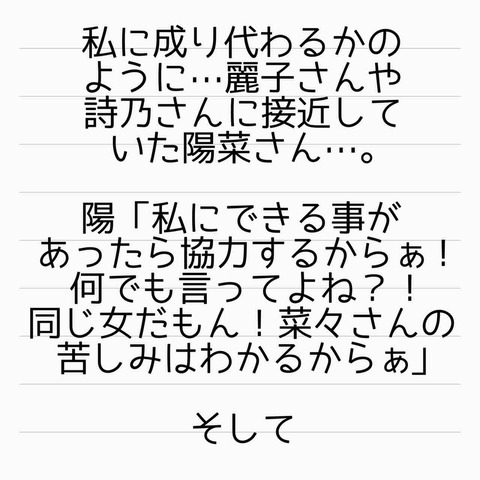 私に成り代わるかの
ように…麗子さんや
詩乃さんに接近して
いた陽菜さん…。
陽「私にできる事が
あったら協力するからぁ！
何でも言ってよね？！
同じ女だもん！菜々さんの
苦しみはわかるからぁ」
そして